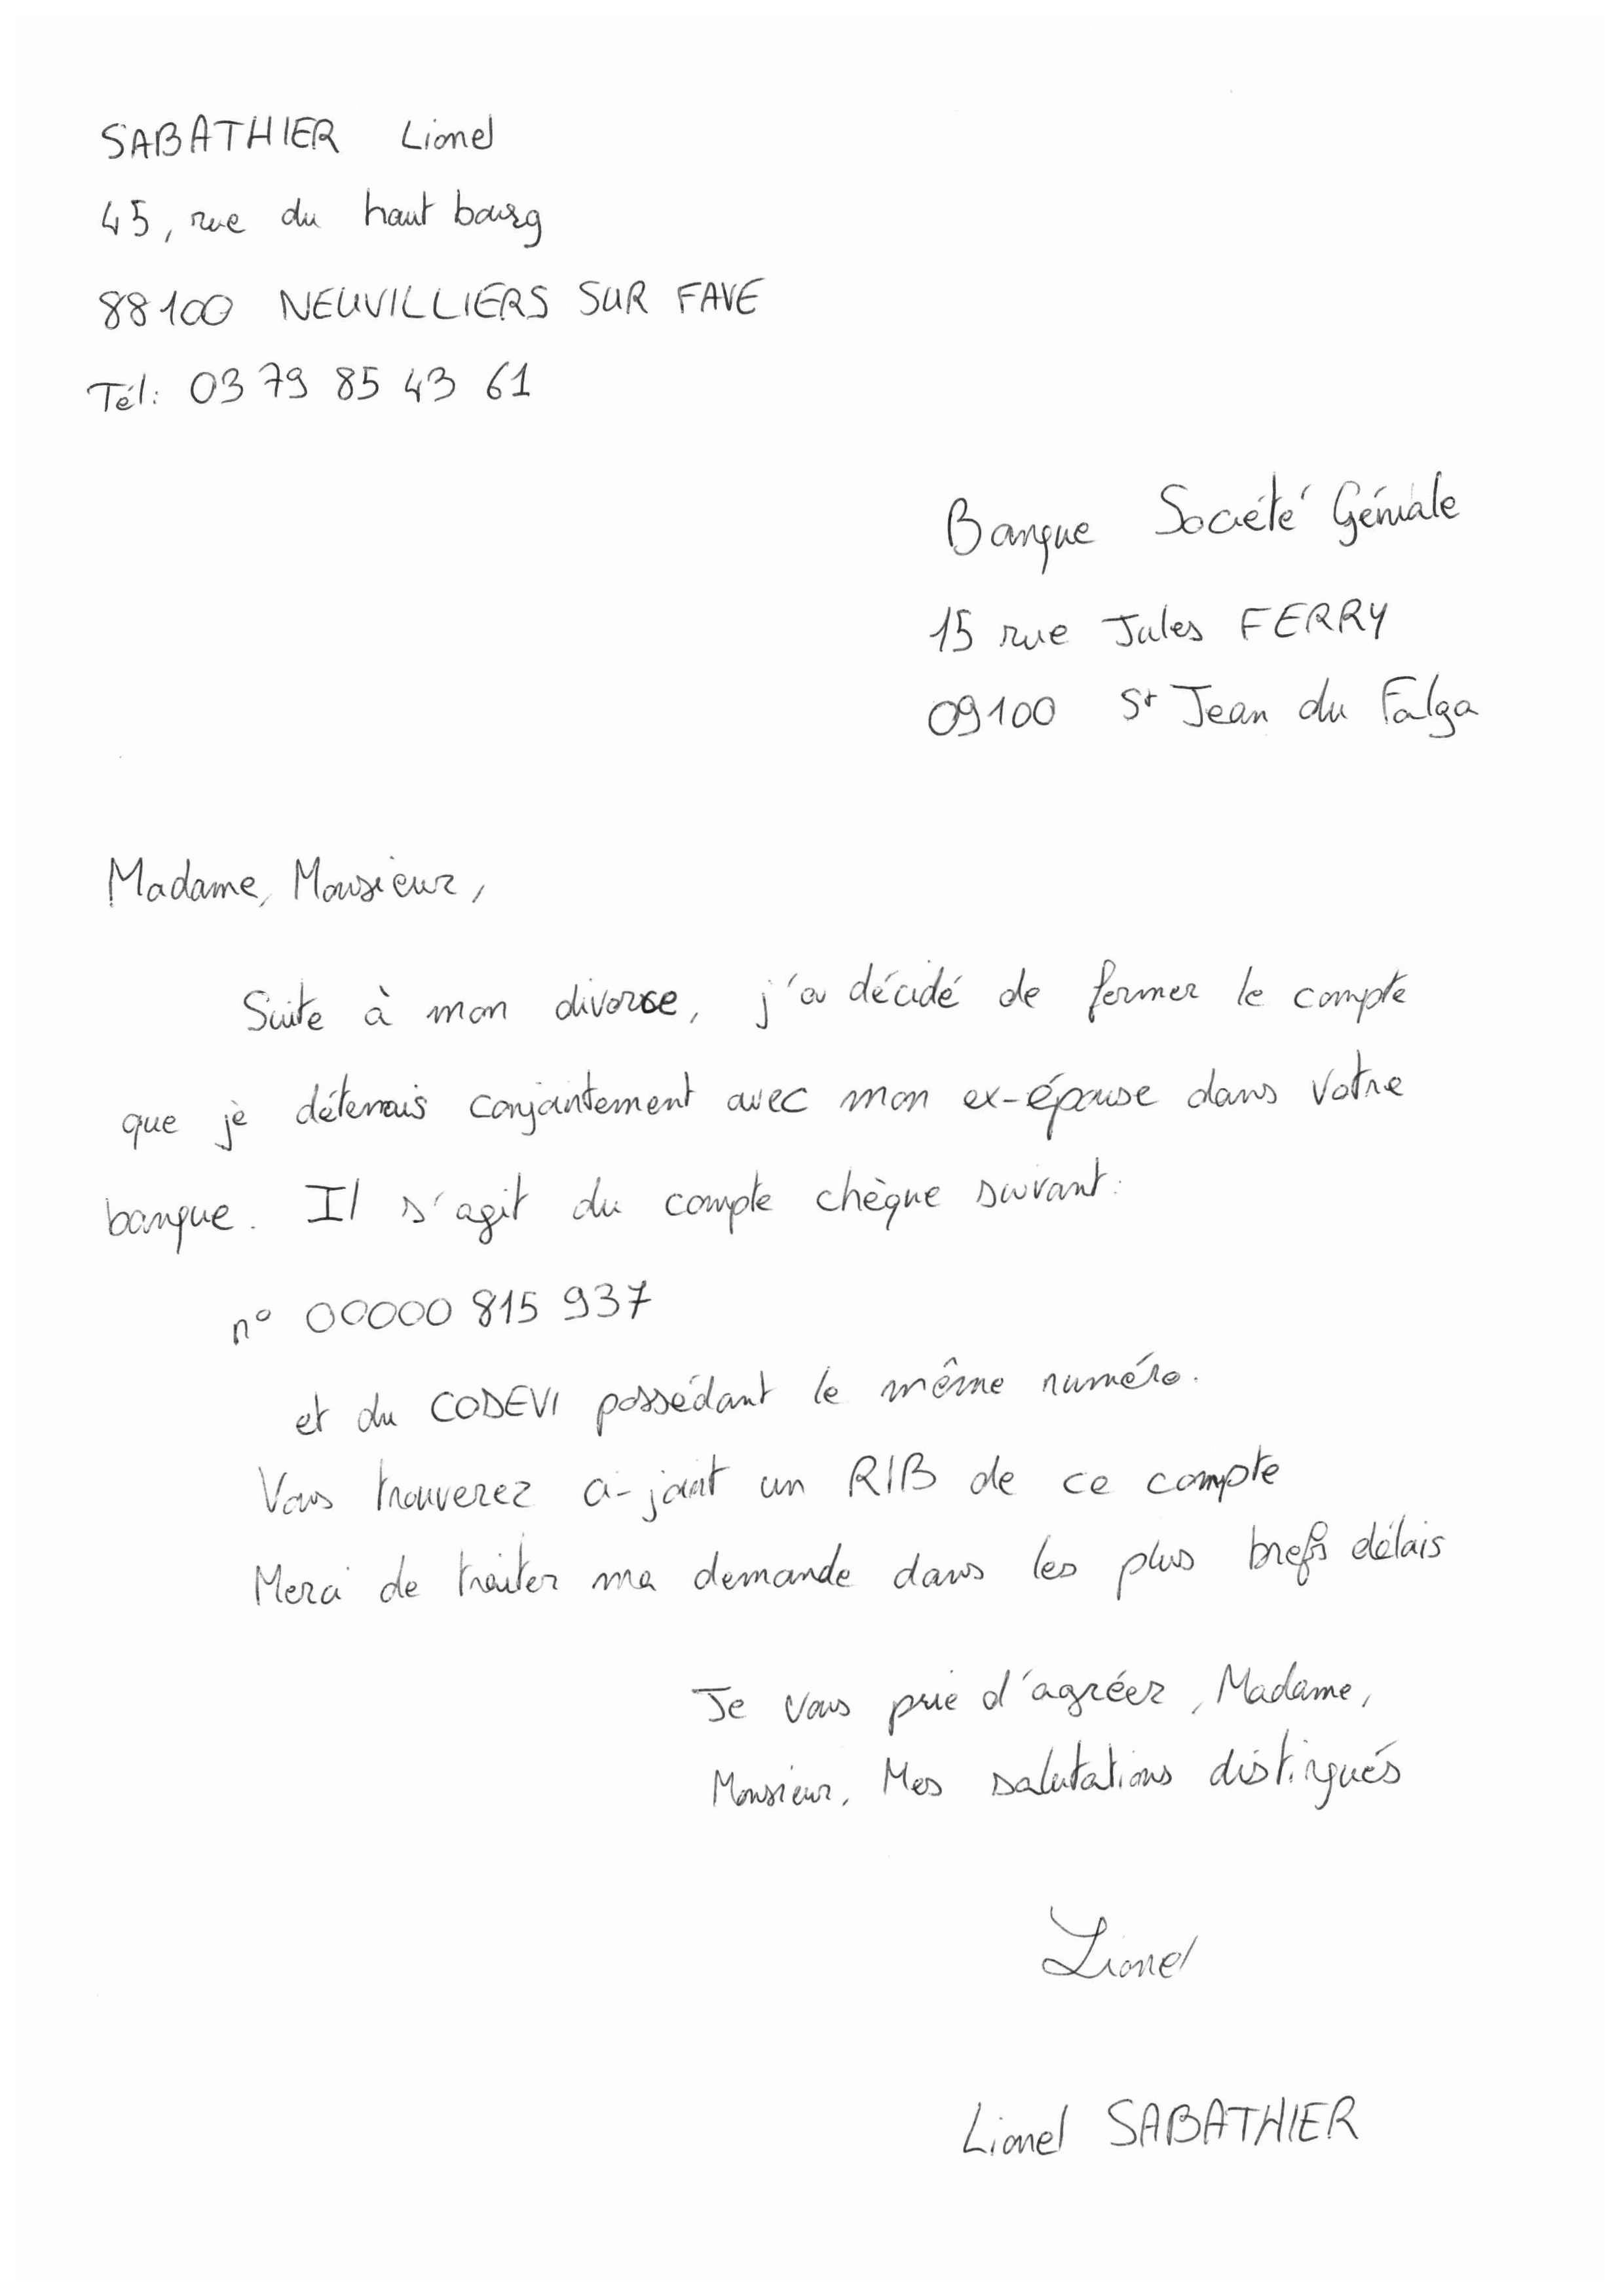 SABATHIER Lionel
45, rue du haut bourg
88100 NEUVILLIERS SUR FAVE
Tél: 03 79 85 43 61
Banque Société Géniale
15 rue Jules FERRY
09100 St Jean du Falga
Madame, Monsieur,
Suite à mon divorce, j'ai décidé de fermer le compte
que je détenais conjointement avec mon ex-épouse dans votre
banque. Il s'agit du compte chèque suivant:
n° 00000 815 937
et du CODEVI possédant le même numéro.
Vous trouverez ci-joint un RIB de ce compte
Merci de traiter ma demande dans les plus brefs délais
Je vous prie d'agréer, Madame,
Monsieur, Mes salutations distingués
Lionel
Lionel SABATHIER